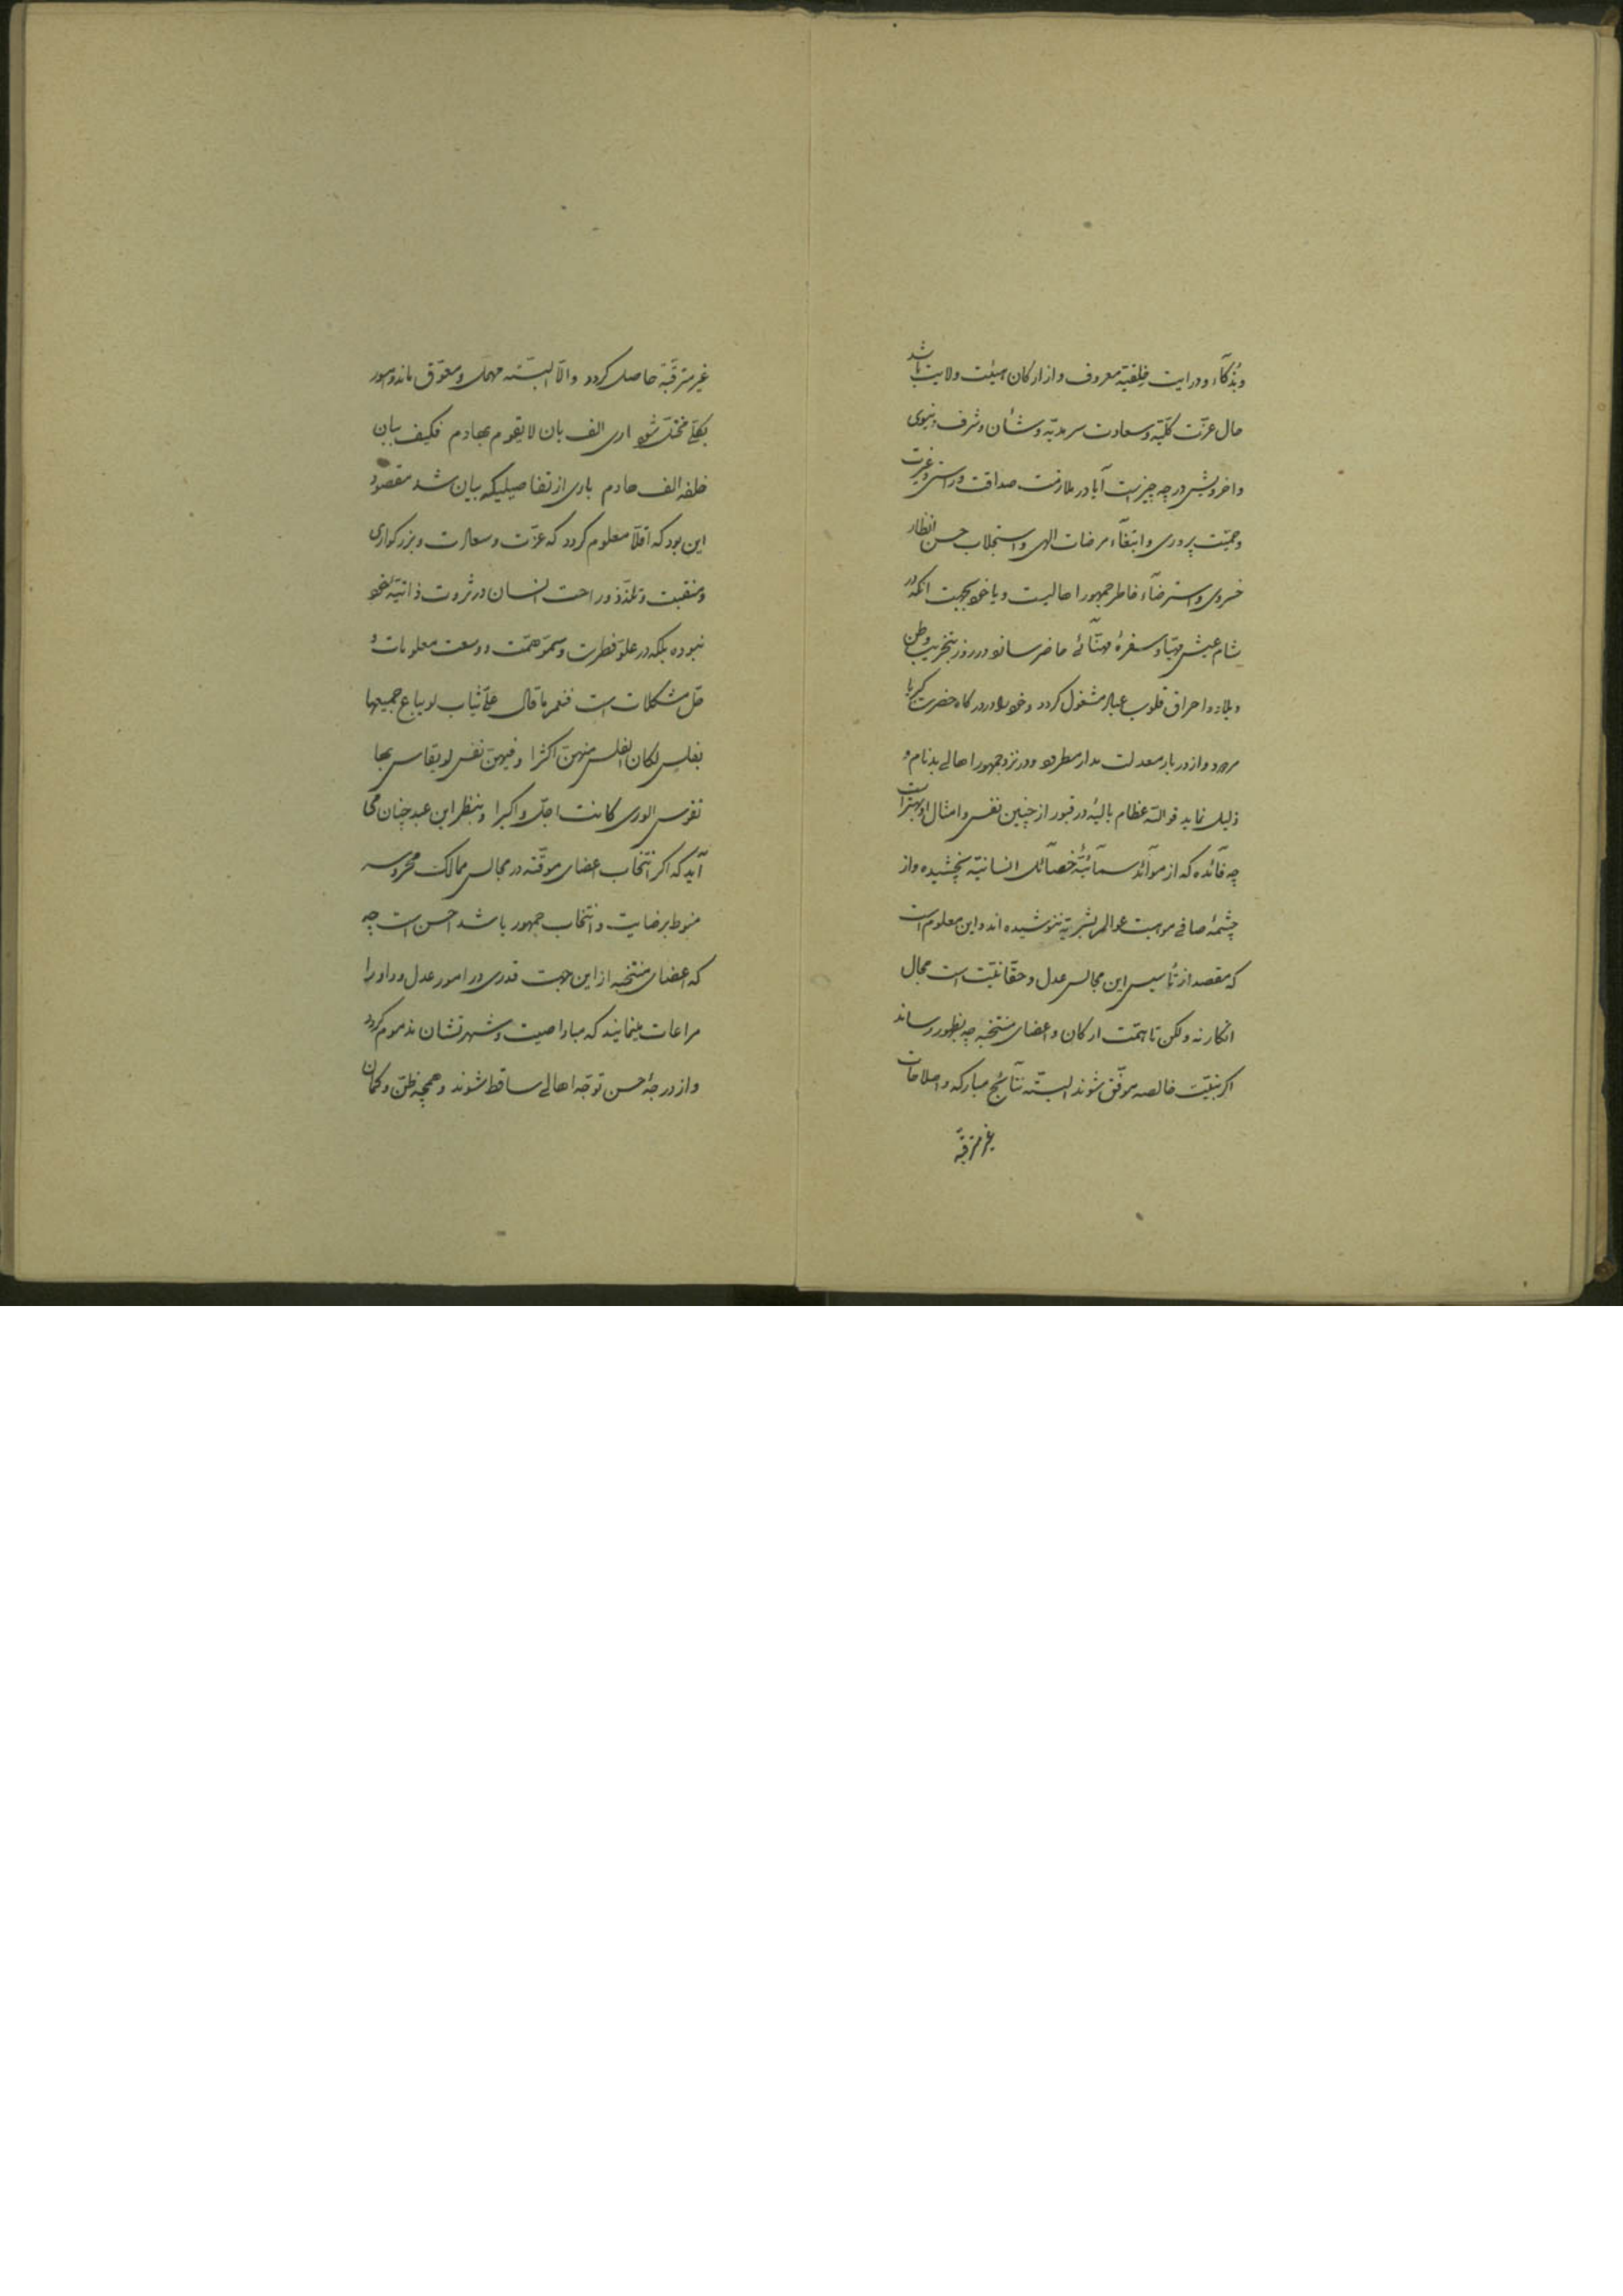 وبذکآء ودرایت خلقیّه معروف واز ارکان هیئت ولایت باشد
حال عزّت کلّیّه وسعادت سرمدیّه وشأن وشرف دنیوی
واخرویش در چه چیز است آیا در ملازمت صداقت وراستی وغیرت
وحمیّت پروری وابتغآء مرضات الهی واستجلاب حسن انظار
خسروی واسترضآء خاطر جمهور اهالیست ویا خود بجهت انکه در
شام عیش مهیّا وسفرهٔ مهنّائی حاضر سازد در روز بتخریب وطن
وبلاد واحراق قلوب عباد مشغول کردد وخود را در درکاه حضرت کبریا
مردود واز دربار معدلت مدار مطرود ودر نزد جمهور اهالی بدنام و
ذلیل نماید فوالله عظام بالیهٔ در قبور از چنین نفس وامثال او بهتر است
چه فآئده که از موآئد سمآئیّهٔ خصآئل انسانیّه نچشیده واز
چشمهٔ صافی موهبت عوالم بشریّه ننوشیده اند واین معلوم است
که مقصد از تأسیس این مجالس عدل وحقّانیّت است مجال
انکار نه ولکن تا همّت ارکان واعضای منتخبه چه بظهور رساند
اکر بنیّت خالصه موفّق شوند البتّه نتآئج مبارکه واصلاحات
غیر مترقّبه
غیر مترقّبه حاصل کردد والّا البتّه مهمل ومعوّق ماند وامور
بکلّی مختلّ شود اری الف بان لا یقوم بهادم فکیف ببان
خلفه الف هادم باری از تفاصیلیکه بیان شد مقصود
این بود که اقلّاً معلوم کردد که عزّت وسعادت وبزرکواری
ومنقبت وتلذّذ وراحت انسان در ثروت ذاتیّهٔ خود
نبوده بلکه در علوّ فطرت وسموّ همّت ووسعت معلومات و
حلّ مشکلات است فنعم ما قال علیّ ثیاب لو یباع جمیعها
بفلس لکان الفلس منهنّ اکثرا وفیهنّ نفس لو یقاس بها
نفوس الوری کانت اجلّ واکبرا وبنظر این عبد چنان می
آید که اکر انتخاب اعضای موقّته در مجالس ممالک محروسه
منوط برضایت وانتخاب جمهور باشد احسن است چه
که اعضای منتخبه از این جهت قدری در امور عدل وداد را
مراعات مینمایند که مبادا صیت وشهرتشان مذموم کردد
واز درجهٔ حسن توجّه اهالی ساقط شوند وهمچه ظنّ وکمان